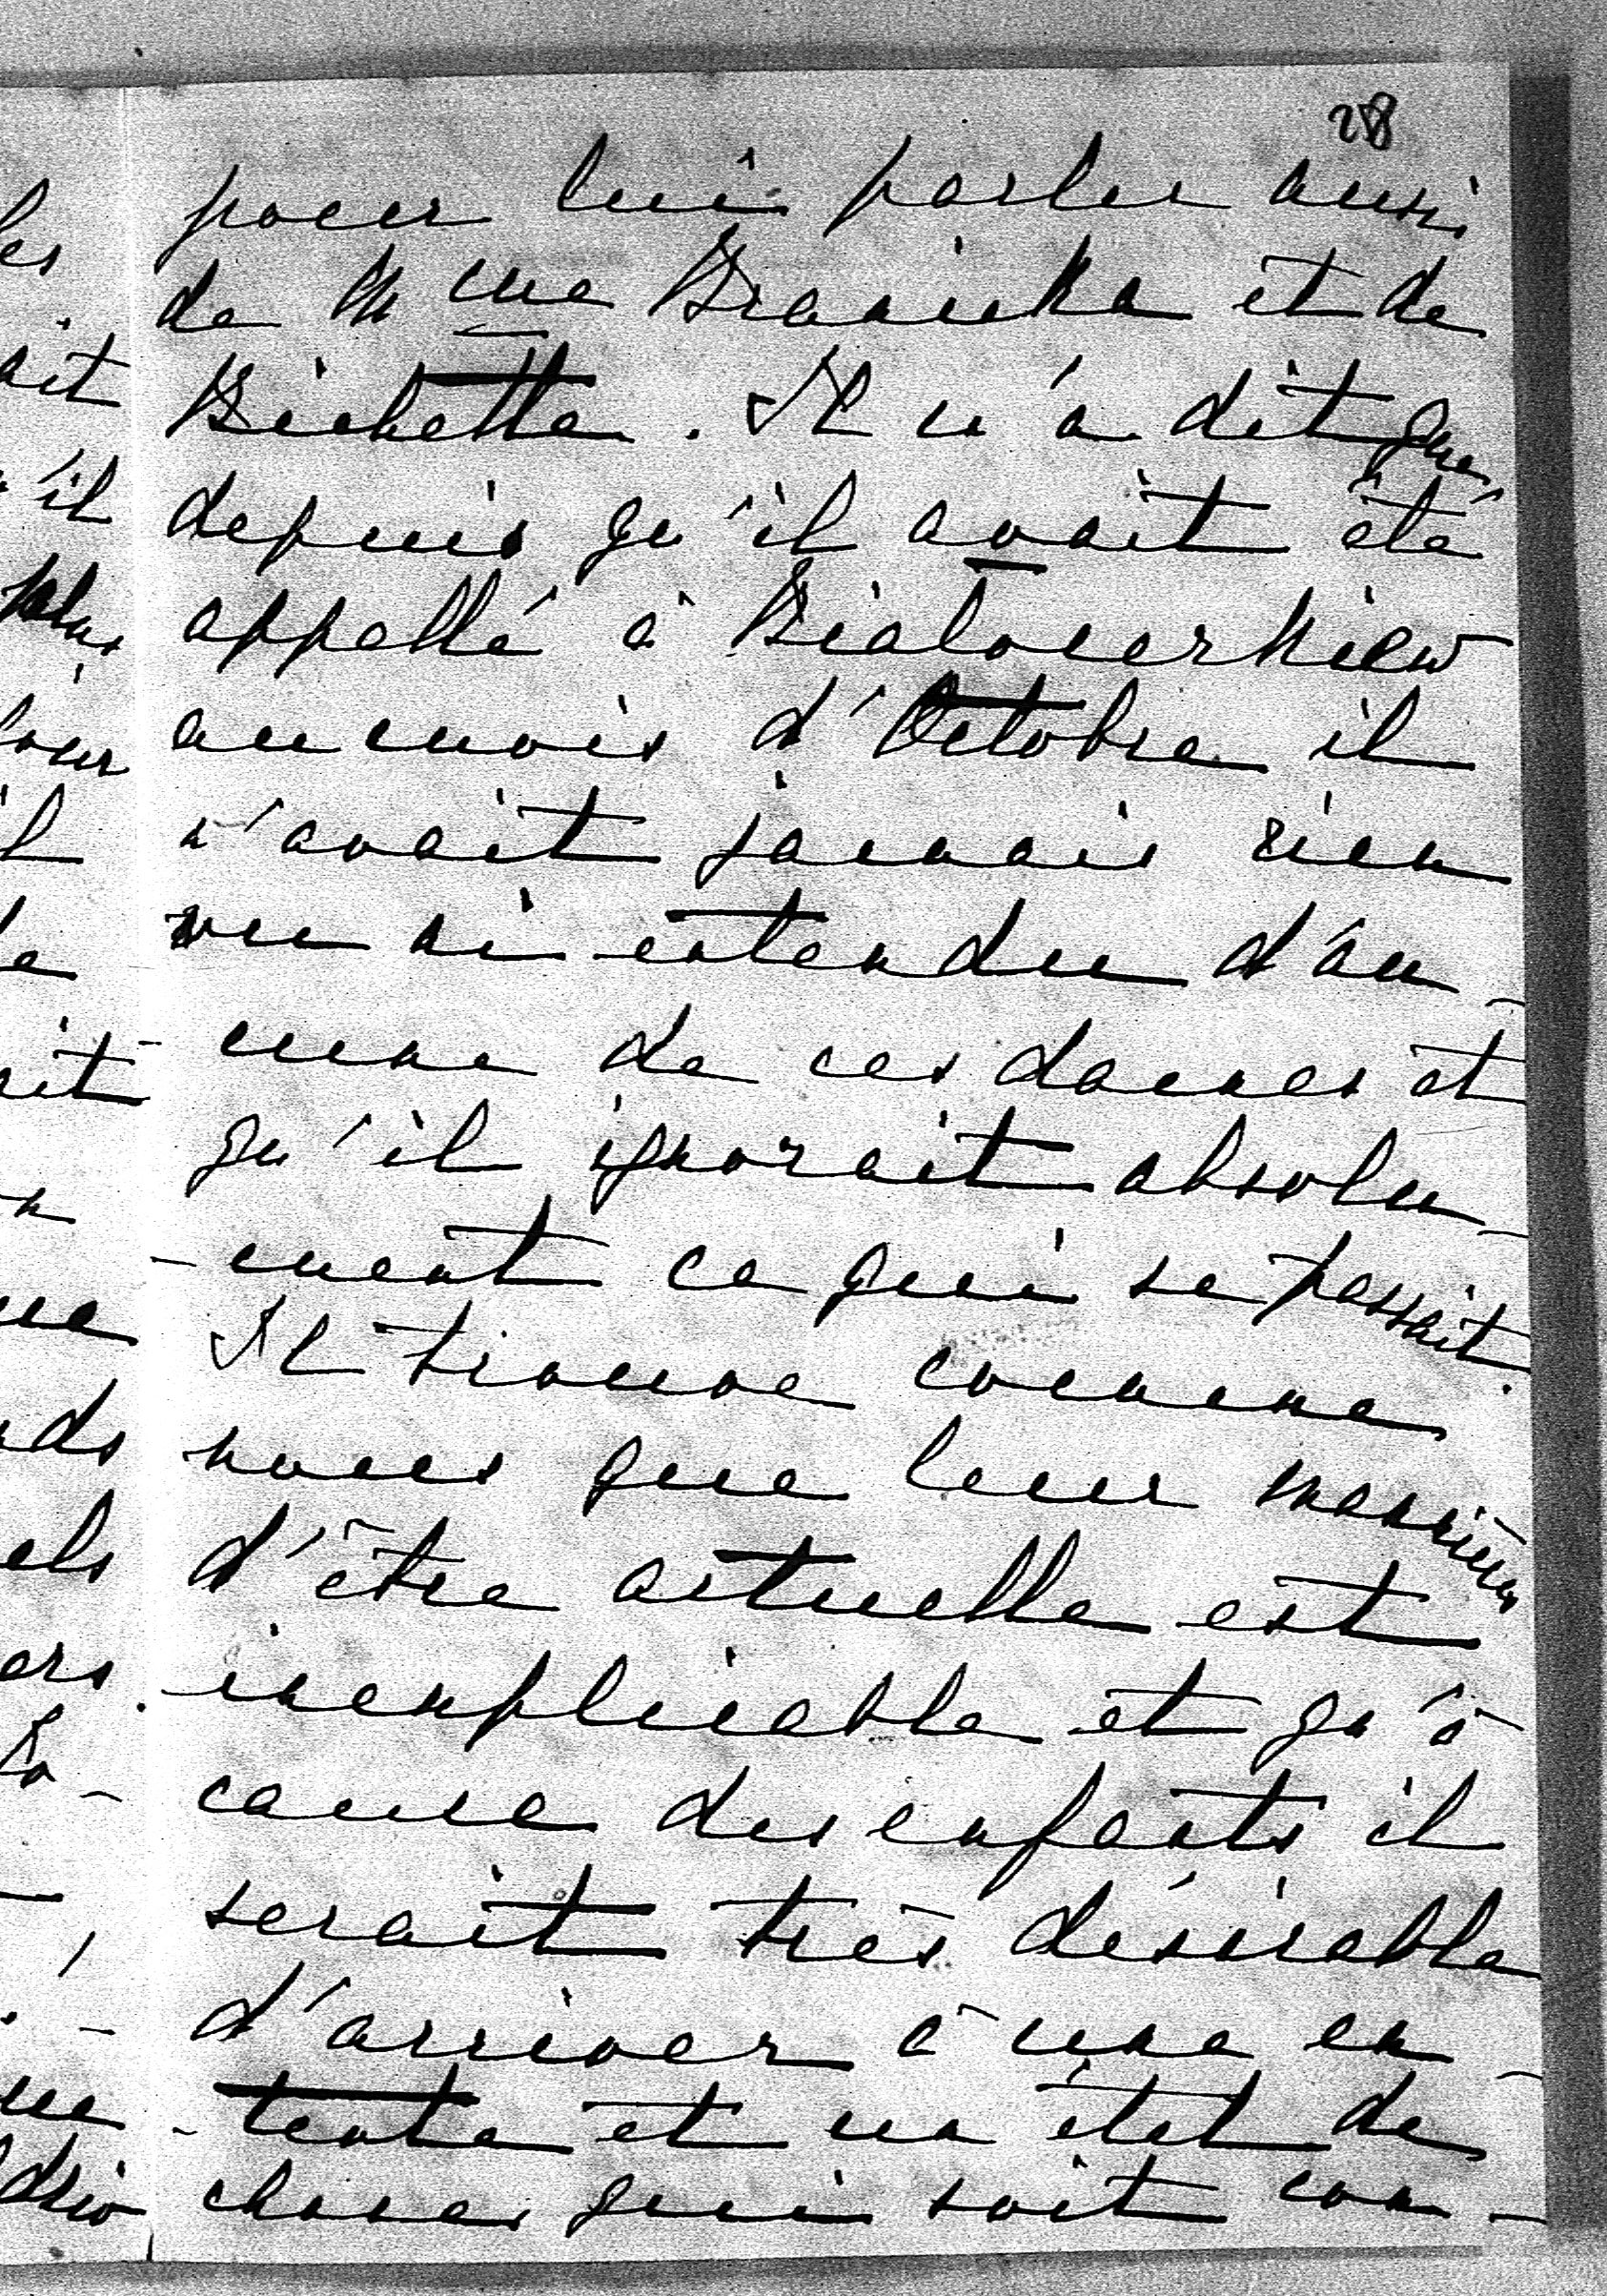 28
pour lui parler aussi
de M me Branicka et de
Bichette. Il m'a dit que
depuis qu'il avait été
appellé à Bialocerkiew
au mois d'Octobre il
n'avait jamais rien
vu ni entendu d'au-
cune de ces dames et
qu'il ignorait absolu-
-ment ce qui se passait.
Il trouve comme
nous que leur manière
d'être actuelle est
inexplicable et qu'à
cause des enfants il
serait très désirable
d'arriver à une en-
-tente et un état de
choses qui soit con-